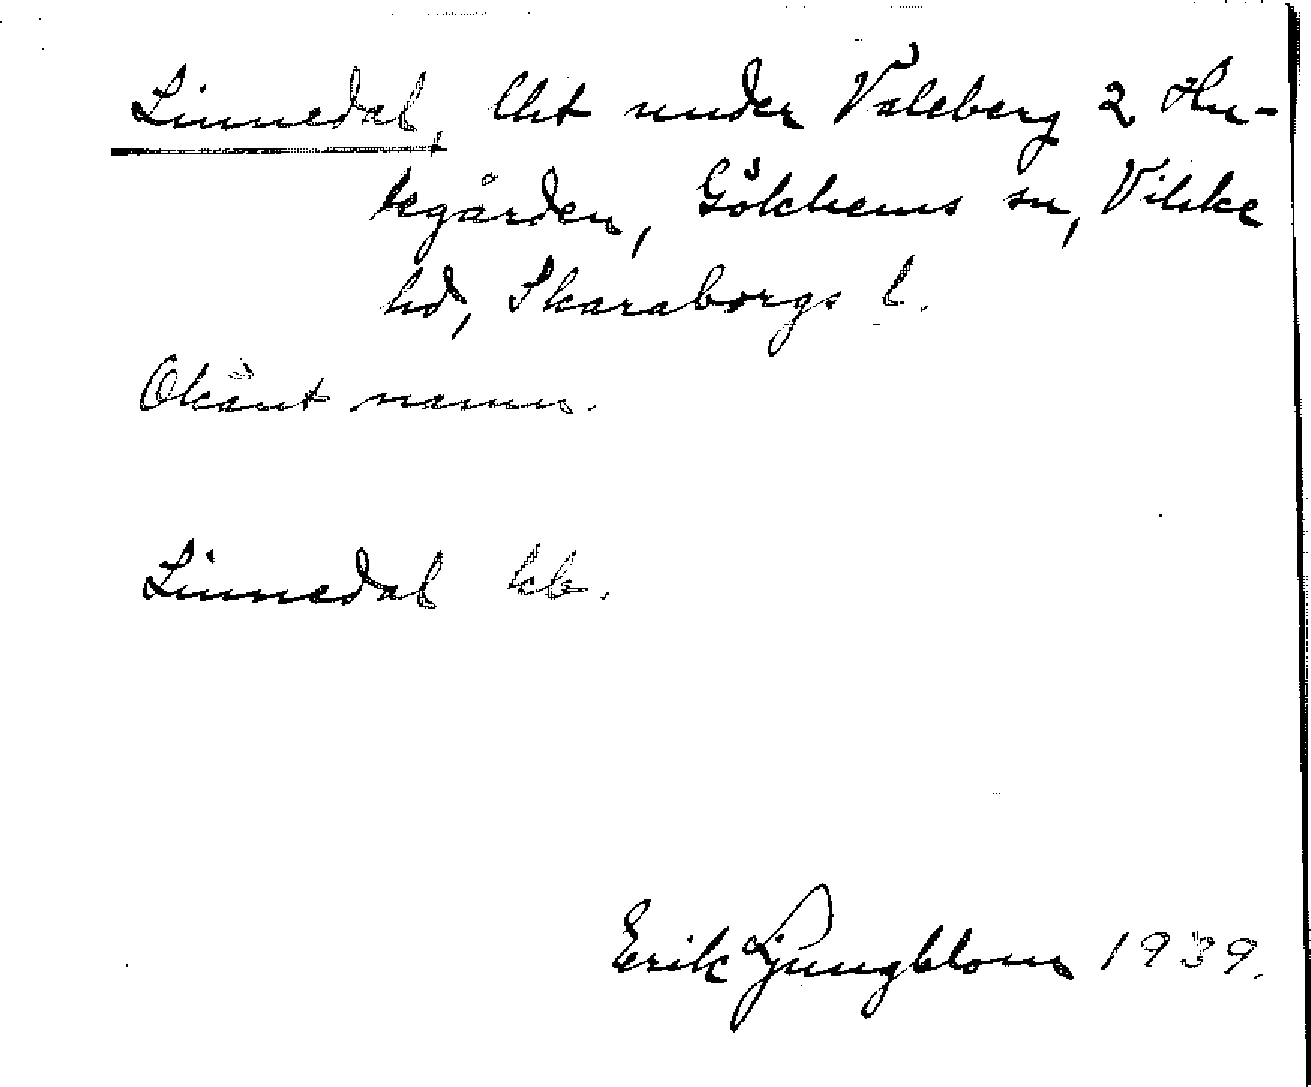 Linnedal, lht under Valeberg 2 Hu-
kegården, Gökhems sn, Vilske
hd, Skaraborgs l.
Okänt namn.
Linnedal kb.
Erik Ljungblom 1939.